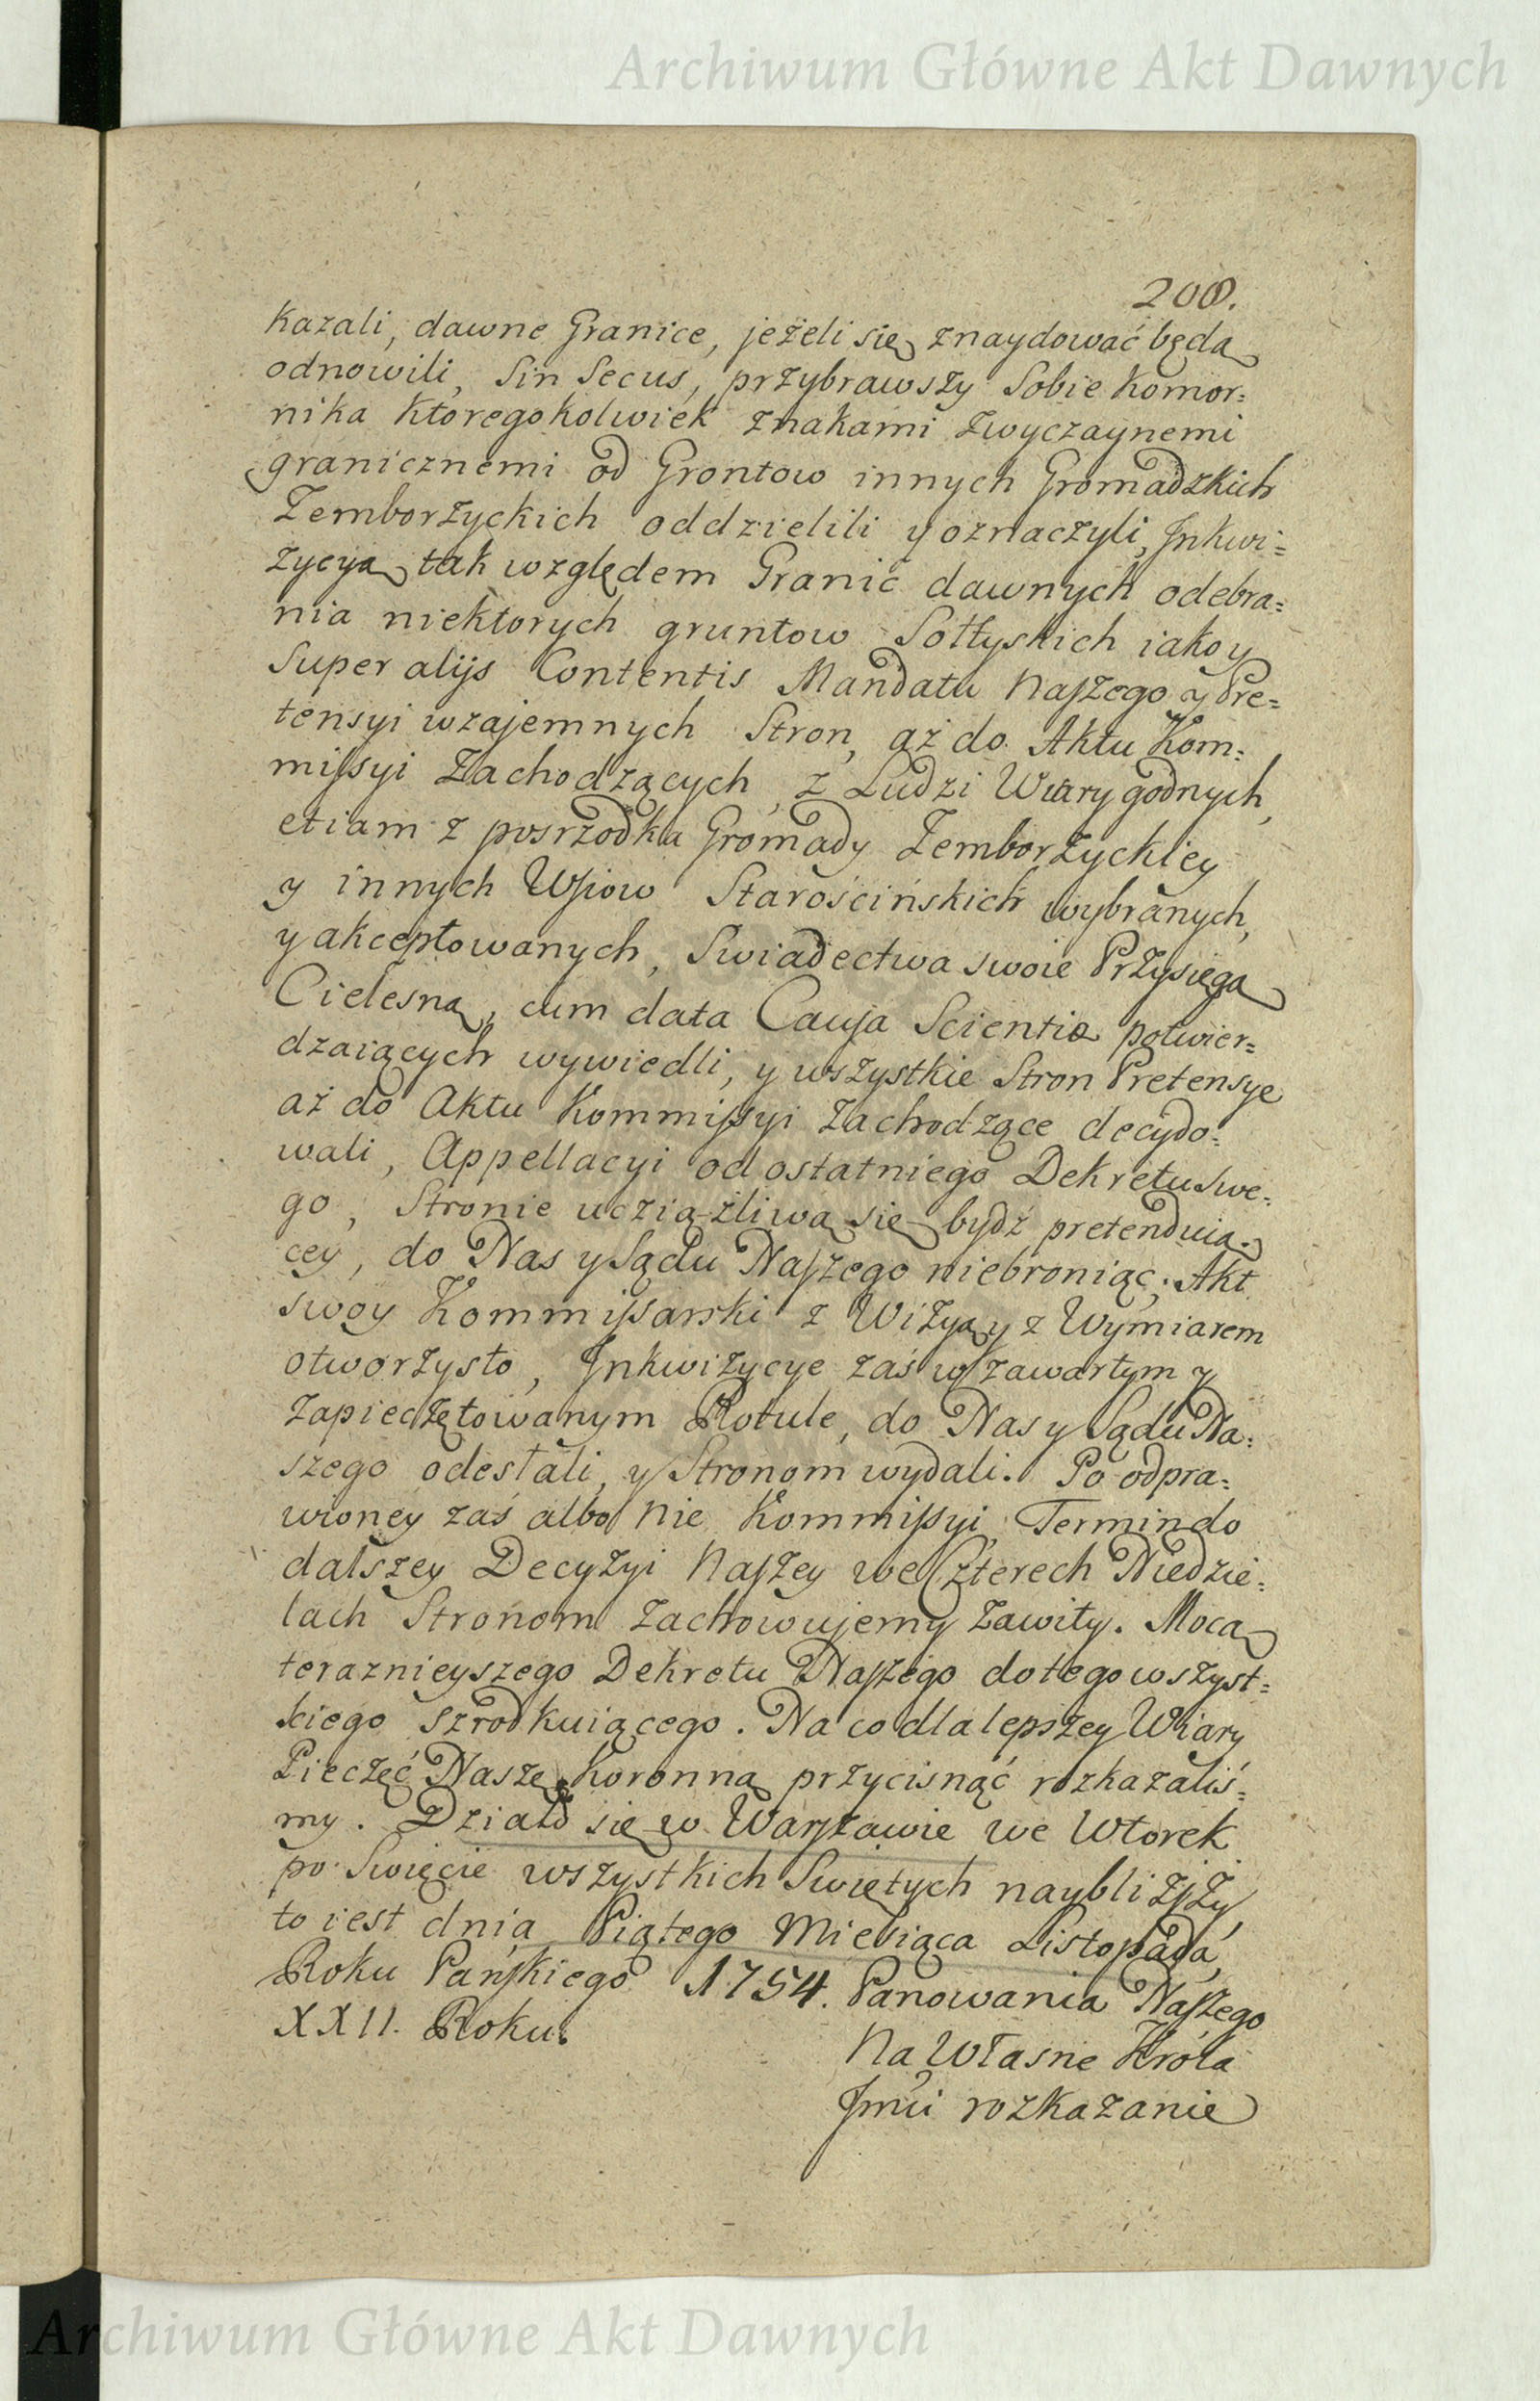 Archiwum Główne Akt Dawnych
208.
kazali, dawne Granice, jeżeli się znaydować będą
odnowili, Sin Secus, przybrawszy Sobie Komor=
nika ktoregokolwiek znakami zwyczaynemi
granicznemi od Grontow innych Gromadzkich
Zemborzyckich oddzielili y oznaczyli, Inkwi=
zycyą tak względem Granic dawnych odebra=
nia niektorych gruntow Sołtyskich iako y
Super alijs Contentis Mandatu Naszego y Pre=
tensyi wzajemnych Stron, aż do Aktu Kom=
missyi Zachodzących, z Ludzi Wiary godnych,
etiam z posrzodka Gromady Zemborzyckiey
y innych Wsiow Starościńskich wybranych,
y akceptowanych, Swiadectwa swoie Przysięgą
Cielesną, cum data Causa Scientiæ potwier=
dzaiących wywiedli, y wszystkie Stron Pretensye
aż do Aktu Kommissyi Zachodzące decydo=
wali, Appellacyi od ostatniego Dekretu Swe=
go, Stronie uciążliwą się bydź pretenduią=
cey, do Nas y Sądu Naszego niebroniąc. Akt
swoy Kommissarski z Wizyą y z Wymiarem
otworzysto, Inkwizycye zaś w zawartym y
zapieczętowanym Rotule, do Nas y Sądu Na=
szego odesłali, y Stronom wydali. Po odpra=
wioney zaś albo nie Kommissyi Termin do
dalszey Decyzyi Naszey we Czterech Niedzie=
lach Stronom zachowujemy zawity. Mocą
teraznieyszego Dekretu Naszego do tego wszyst=
kiego szrodkuiącego. Na co dla lepszey Wiary
Pieczęć Naszę Koronną przycisnąć rozkazaliś=
my. Działo się w Warszawie we Wtorek
po Swięcie wszystkich Swiętych nayblizszy,
to iest dnia Piątego Miesiąca Listopada,
Roku Pańskiego 1754. Panowania Naszego
XXII. Roku.
Na Własne Króla
Jmci rozkazanie
Archiwum Główne Akt Dawnych